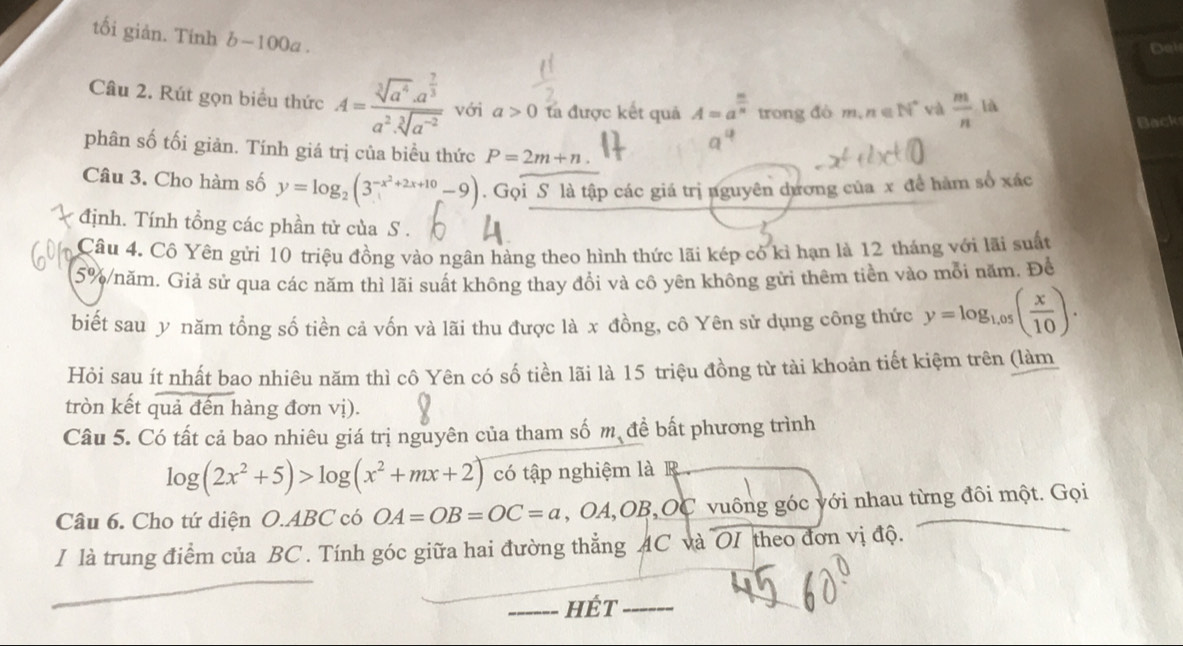 tối giản. Tính b−100a.
Câu 2. Rút gọn biểu thức A = \frac{\sqrt[3]{a^4}.a^{\frac{2}{3}}}{a^2.\sqrt[3]{a^{-2}}} với a > 0 ta được kết quả A = a^{\frac{m}{n}} trong đó m, n ∈ N* và \frac{m}{n} là
phân số tối giản. Tính giá trị của biểu thức P = 2m + n.
Câu 3. Cho hàm số y = log₂(3^{−x²+2x+10} − 9). Gọi S là tập các giá trị nguyên dương của x để hàm số xác
định. Tính tổng các phần tử của S. 6 4
60% Câu 4. Cô Yên gửi 10 triệu đồng vào ngân hàng theo hình thức lãi kép có kì hạn là 12 tháng với lãi suất
5%/năm. Giả sử qua các năm thì lãi suất không thay đổi và cô yên không gửi thêm tiền vào mỗi năm. Để
biết sau y năm tổng số tiền cả vốn và lãi thu được là x đồng, cô Yên sử dụng công thức y = log_{1,05}(\frac{x}{10}).
Hỏi sau ít nhất bao nhiêu năm thì cô Yên có số tiền lãi là 15 triệu đồng từ tài khoản tiết kiệm trên (làm
tròn kết quả đến hàng đơn vị). 8
Câu 5. Có tất cả bao nhiêu giá trị nguyên của tham số m để bất phương trình
log(2x² + 5) > log(x² + mx + 2) có tập nghiệm là ℝ.
Câu 6. Cho tứ diện O.ABC có OA = OB = OC = a, OA, OB, OC vuông góc với nhau từng đôi một. Gọi
I là trung điểm của BC. Tính góc giữa hai đường thẳng AC và OI theo đơn vị độ.
45 60⁰
------ HẾT ------